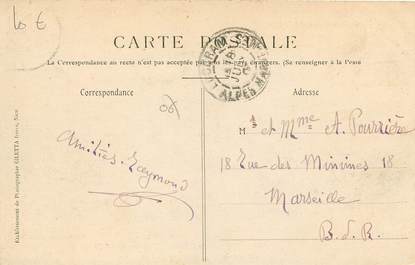 10 €
CARTE POSTALE
La Correspondance au recto n'est pas acceptée par tous les pays étrangers. (Se renseigner à la Poste
Correspondance
Adresse
06
Amitiés. Raymond
Mr et Mme A. Pourrière
18 Rue des Minimes 18
Marseille
B. d. R.
ALPES MAR
Etablissement de Photographie GILETTA frères, Nice